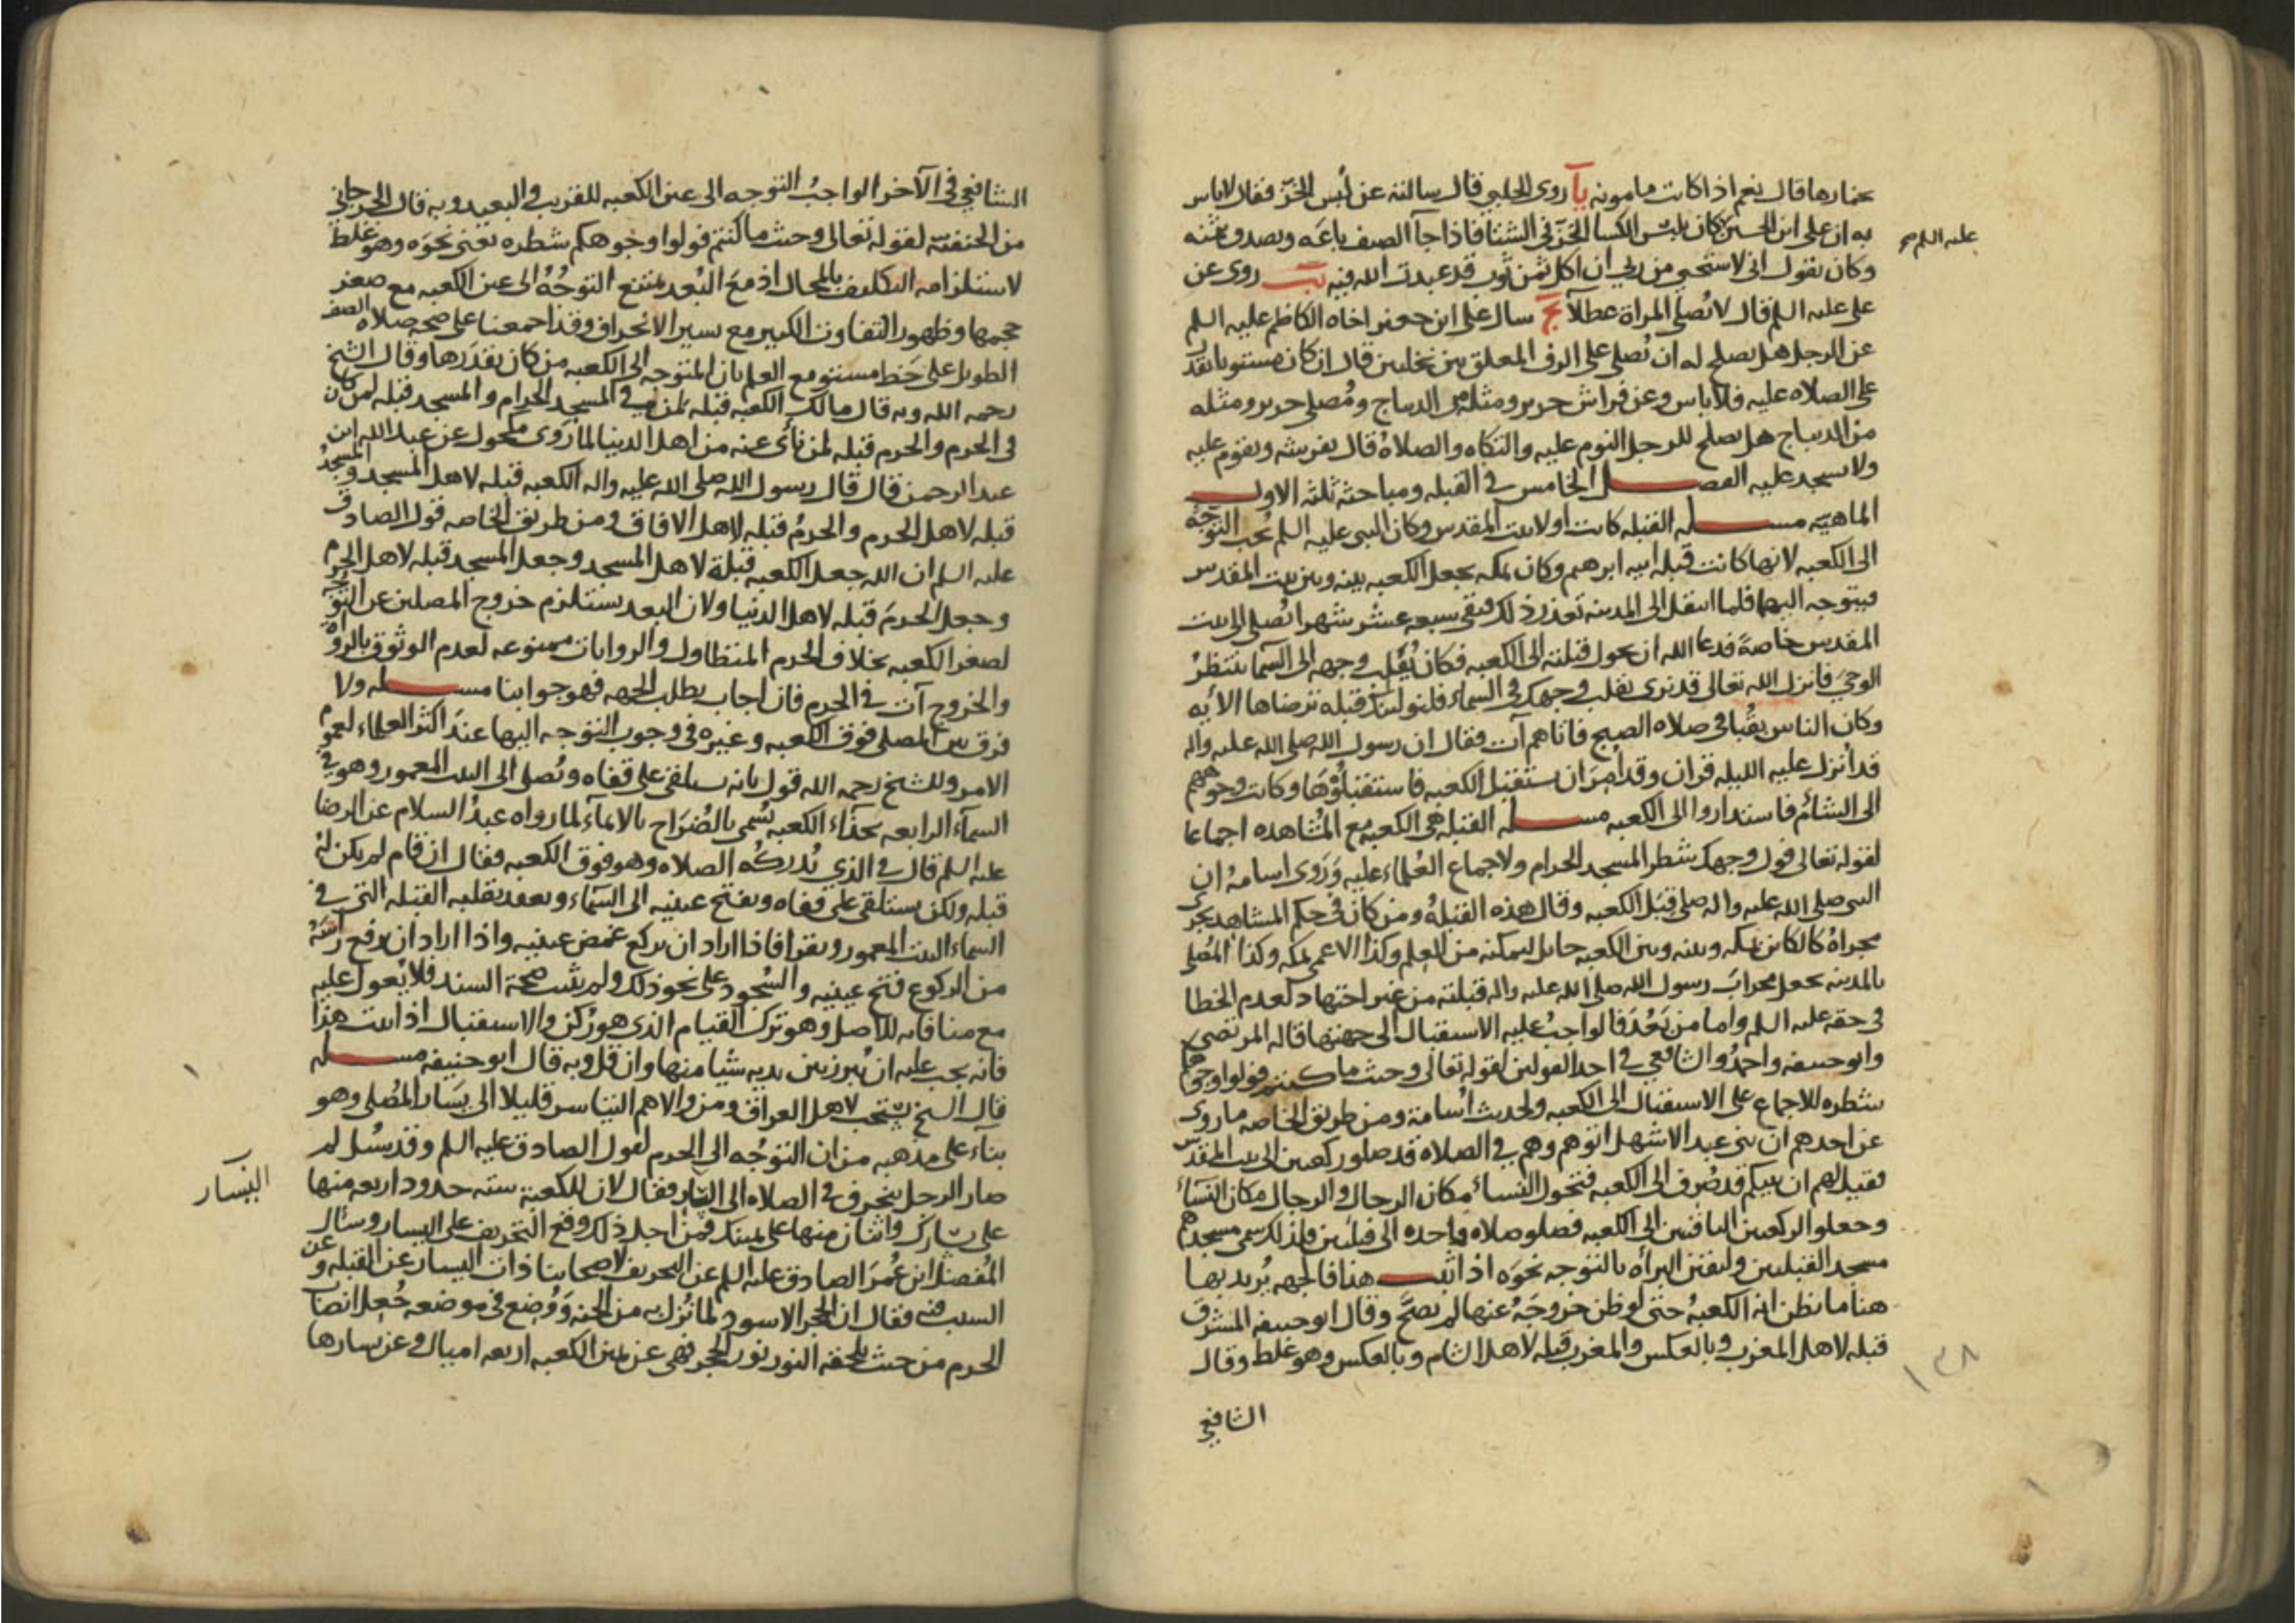 خمارها قال نعم اذا كانت مامونه يآ روى الحلبي قال سالته عن لُبس الخزّ فقال لاباس
به ان على ابن الحسين كان يلبس الكسا الخزّ فى الشتا فاذا جآ الصيف باعَه وتصدق بثمنه
عليه السلم صح
وكان يقول انى لاستحيى من ربى ان اكل ثمن ثوب قد عبدت الله فيه يب روى عن
على عليه السلم قال لا تُصلى المراة عطلاً يج سال على ابن جعفر اخاه الكاظم عليه السلم
عن الرجل هل يصلح له ان يُصلى على الرف المعلق بين نخلتين قال ان كان مستويا يقدر
على الصلاه عليه فلا باس وعن فراش حرير ومثله من الديباج ومُصلى حرير ومثله
من الديباج هل يصلح للرجل النوم عليه والتكاه والصلاة قال يفرشه ويقوم عليه
ولا يسجد عليه الفصل الخامس فى القبله ومباحثه ثلثه الاول
الماهيّه مسله القبله كانت اولا بيت المقدس وكان النبى عليه السلم يُحب التوجّه
الى الكعبه لانها كانت قبلة ابيه ابرهيم وكان بمكه يجعل الكعبه بينه وبين بيت المقدس
ويتوجه اليها فلما انتقل الى المدينه تعذر ذلك فبقى سبعه عشر شهرا يُصلى الى بيت
المقدس خاصةً فدعا الله ان يحول قبلته الى الكعبه فكان يُقلب وجهه الى السما ينتظر
الوحىَ فانزل الله تعالى قد نرى تقلب وجهك فى السماء فلنولينك قبله ترضاها الآيه
وكان الناس بقُبا فى صلاه الصبح فاتاهم آت فقال ان رسول الله صلى الله عليه واله
قد أنزل عليه الليله قران وقد اُمِرَ ان ستقبل الكعبه فاستقبلُوْها وكانت وجوههم
الى الشام فاستداروا الى الكعبه مسله القبله هى الكعبه مع المُشاهده اجماعا
لقوله تعالى فول وجهك شطر المسجد الحرام ولاجماع العُلماء عليه وَرَوى اسامه ان
النبى صلى الله عليه واله صلى قِبَل الكعبه وقال هذه القبلةُ ومن كان فى حكم المشاهد يجرى
مجراهُ كالكاين بمكه وبينه وبين الكعبه حايل ليمكنه من العلم وكذا الاعمى بمكه وكذا المُصلى
بالمدينه يجعل محرابَ رسول الله صلى الله عليه واله قبلته من غير اجتهاد لعدم الخطا
فى حقه عليه السلم واما من بَعُدَ فالواجبُ عليه الاستقبال الى جهتها قاله المرتضى
وابو حنيفه واحمدُ والشافعي فى احد القولين لقوله تعالى وحيث ما كنتم فولوا وجوهكم
شطره للاجماع على الاستقبال الى الكعبه ولحديث اُسامة ومن طريق الخاصه ما روى
عن احدهم ان بنى عبد الاشهل اتوهم وهم فى الصلاه قد صلوا ركعتين الى بيت المقدس
فقيل لهم ان نبيكم قد صُرف الى الكعبه فتحول النسآ مكان الرجال والرجال مكان النسآ
وجعلوا الركعتين الباقتين الى الكعبه فصلوا صلاه واحده الى قبلتين فلذلك سمى مسجدهم
مسجد القبلتين وليقين البرأه بالتوجه نحوَه اذا ثبت هذا فالجهه يُريد بها
هنا ما يظن انه الكعبهُ حتى لو ظن خروجَهُ عنها لم يصحّ وقال ابو حنيفه المشرق
قبله لاهل المغرب وبالعكس والمغرب قبله لاهل الشام وبالعكس وهو غلط وقال
١٣٨
الشافعي
الشافعي فى الآخر الواجبُ التوجه الى عين الكعبه للقريب والبعيد وبه قال الجرجانى
من الحنفيّة لقوله تعالى وحيث ما كنتم فولوا وجوهكم شطره يعنى نحوَه وهو غلط
لاستلزامه التكليف بالمحال اذ مع البُعد يمتنع التوجُهُ الى عين الكعبه مع صغر
حجمها وظهور التفاوت الكبير مع يسير الانحراف وقد اجمعنا على صحه صلاه الصف
الطويل على خط مستو مع العلم بان المتوجه الى الكعبه من كان بقدَرها وقال الشيخ
رحمه الله وبه قال مالك الكعبه قبله لمن فى المسجد الحرام والمسجد قبله لمن كان
فى الحرم والحرم قبله لمن نأى عنه من اهل الدنيا لما رَوى مكحول عن عبد الله ابن
عبد الرحمن قال قال رسول الله صلى الله عليه واله الكعبه قبله لاهل المسجد والمسجدُ
قبله لاهل الحرم والحرمُ قبله لاهل الافاق ومن طريق الخاصه قول الصادق
عليه السلم ان الله جعل الكعبه قبلة لاهل المسجد وجعل المسجد قبله لاهل الحرم
وجعل الحرمَ قبله لاهل الدنيا ولان البعد يستلزم خروج المصلين عن التوجّه
لصغر الكعبه بخلاف الحرم المتطاول والروايات ممنوعه لعدم الوثوق بالرواه
والخروج آت فى الحرم فان اجاب بطلب الجهه فهو جوابنا مسله ولا
فرق بين المصلى فوق الكعبه وغيره فى وجوب التوجه اليها عندَ اكثر العلماء لعموم
الامر وللشيخ رحمه الله قول بانه يستلقى على قفاه ويُصلى الى البيت المعمور وهو فى
السمآء الرابعه بحذآء الكعبه يُسَمى بالضُرَاح بالايمآء لما رواه عبدُ السلام عن الرضا
عليه السلم قال فى الذي تُدركُه الصلاه وهو فوق الكعبه فقال ان قام لم يكن لهُ
قبله ولكن يستلقى على قفاه ويفتح عينيه الى السمآء ويعقد بقلبه القبله التى فى
السماء البيت المعمور ويقرا فاذا اراد ان يركع غمض عينيه واذا اراد ان يرفع رأسَهُ
من الركوع فتح عينيه والسُجود على نحو ذلك ولم يثبت صحة السند فلا يُعول عليه
مع منافاته للاصل وهو ترك القيام الذى هو رُكن والاستقبال اذا ثبت هذا
فانه يجب عليه ان يُبرز بين يديه شيا منها وان قل وبه قال ابو حنيفه مسله
قال الشيخ يُستحب لاهل العراق ومن والاهم التياسر قليلا الى يسَار المُصلى وهو
بناء على مذهبه من ان التوجُه الى الحرم لقول الصادق عليه السلم وقد سُئل لم
صار الرجل ينحرف فى الصلاه الى اليسار فقال لان للكعبة سته حدود اربعه منها
اليسار
على يسارك واثنان منها على يمينك فمن اجل ذلك وقع التحريف على اليسار وسئال
المُفضل ابن عُمرَ الصادق عليه السلم عن التحريف لاصحابنا ذات اليسار عن القبله وعن
السبب فيه فقال ان الحجر الاسود لما نُزل به من الجنه وَوُضع فى موضعه جُعل انصابُ
الحرم من حيث يلحقه النور نور الحجر فهى عن يمين الكعبه اربعه اميال وعن يسارها